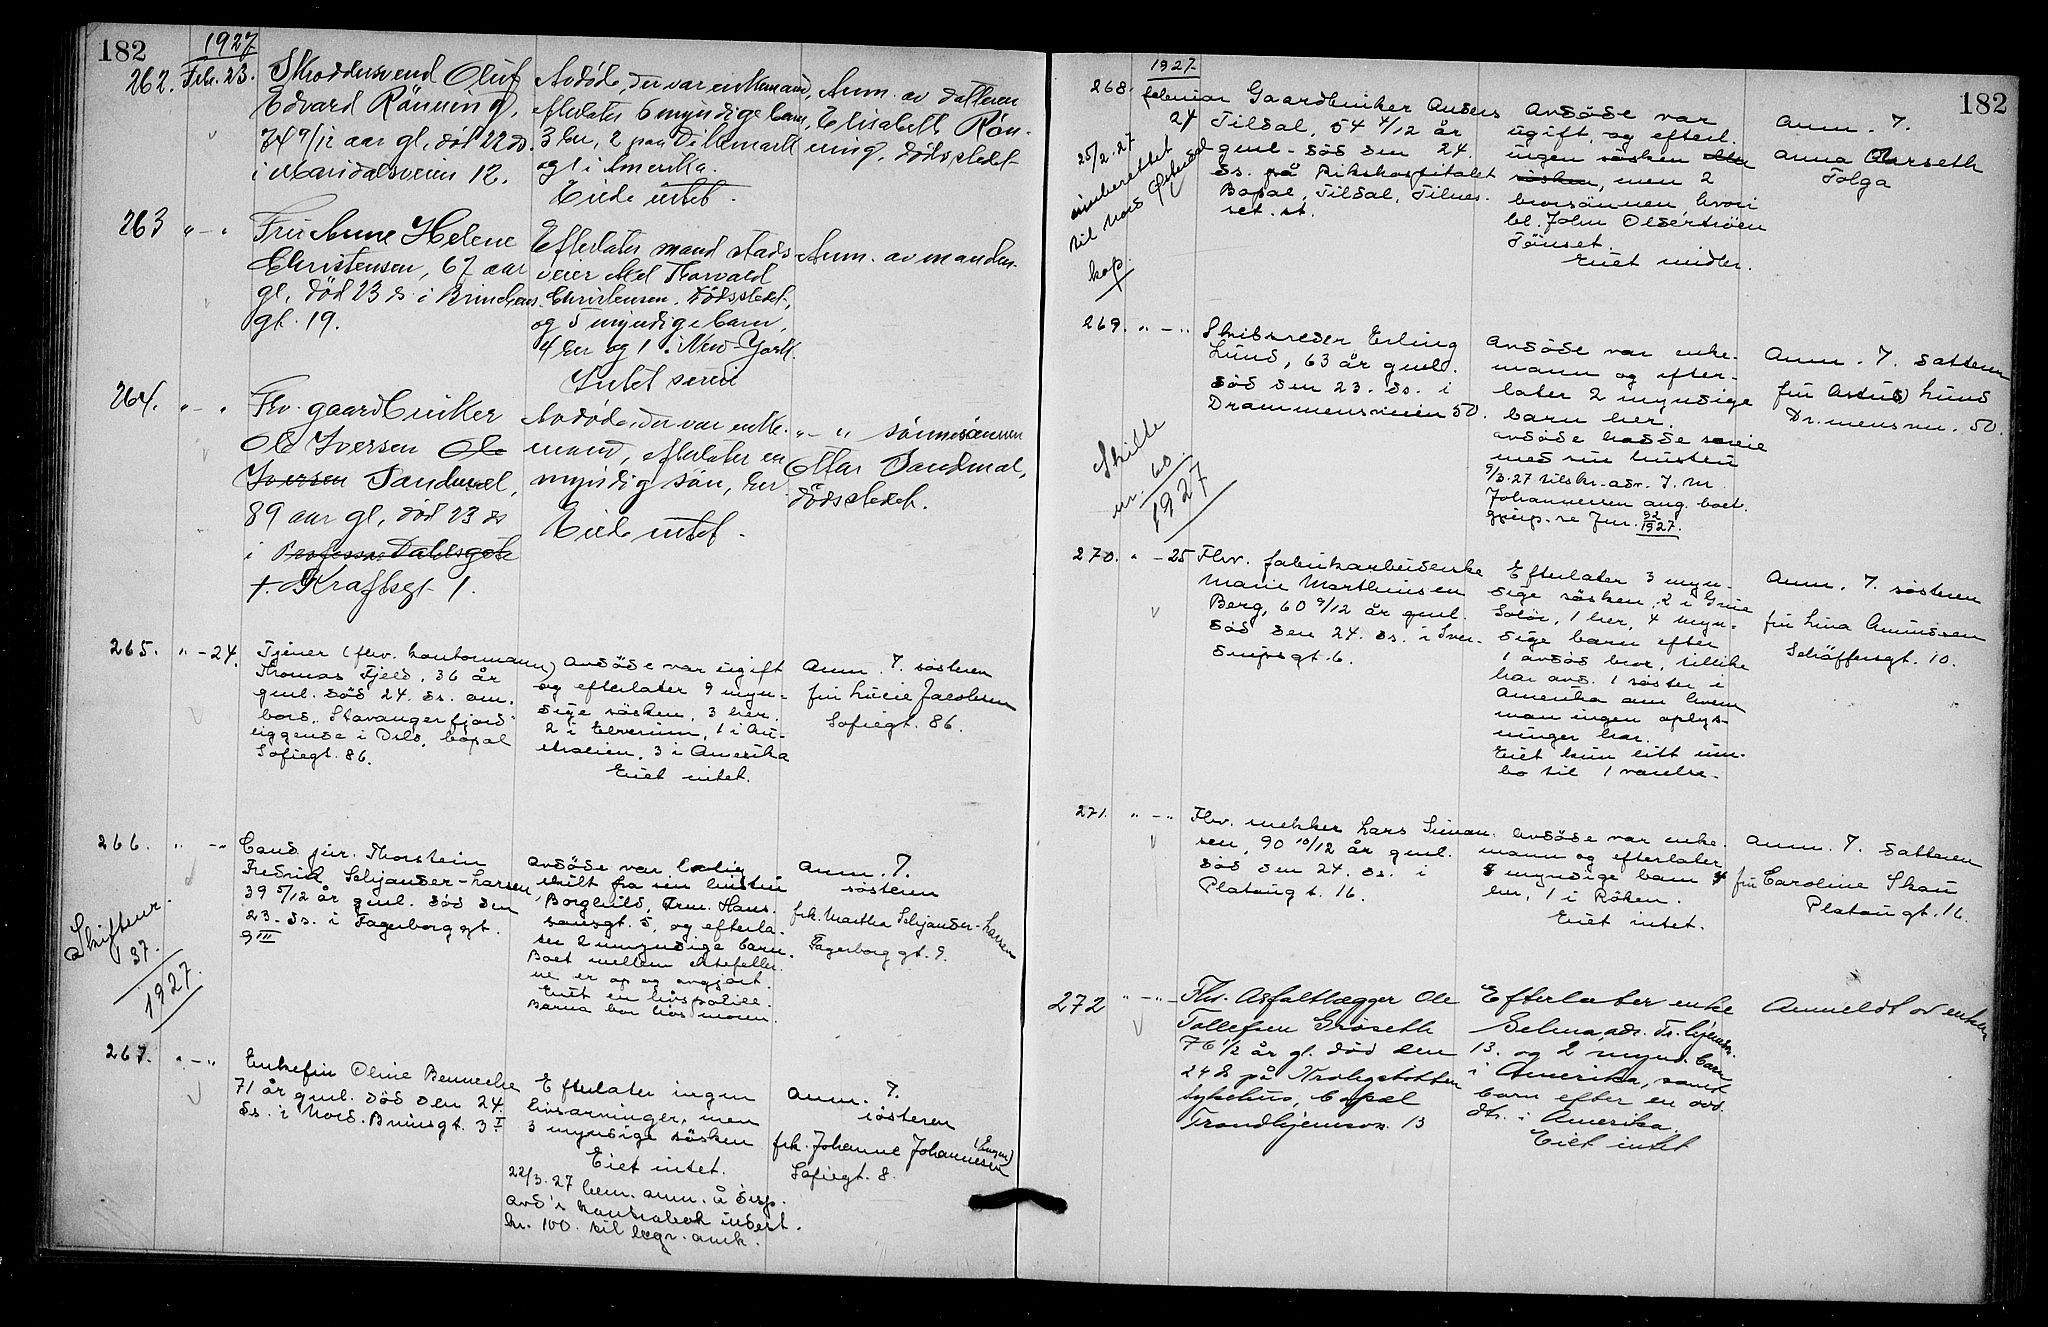 182
1927
262. Feb. 23.
Skræddersvend Oluf
Edvard Rønning,
74 9/12 aar gl, død 22 ds.
i Maridalsveien 12.
Avdøde, der var enkemand,
efterlater 6 myndige barn,
3 her, 2 paa Dikemark
og 1 i Amerika.
Eiede intet.
Anm. av datteren
Elisabeth Røn-
ning, dødsstedet
263 " - "
Fru Anne Helene
Christensen, 67 aar
gl, død 23 ds i Brinchens
gt. 19.
Efterlater mand stads
veier Axel Thorvald
Christensen, dødsstedet,
og 5 myndige barn,
4 her og 1 i New-York.
Intet særeie
Anm. av manden.
264. " - "
Fhv. gaardbruker
Ole Iversen Ole
Iversen Sandmæl,
89 aar gl, død 23 ds
i Professor Dahlsgate
+. Kraftsgt 1.
Avdøde, der var enke-
mand, efterlater en
myndig søn, her.
Eiede intet.
" - " sønnesønnen
Ottar Sandmæl,
dødsstedet.
265. " - 24.
Tjener (fhv. kontormann)
Thomas Fjeld, 36 år
gml. död 24. ds. om-
bord "Stavangerfjord"
liggende i Oslo, bopæl
Sofiegt. 86.
Avdöde var ugift
og efterlater 9 myn-
dige sösken, 3 her.
2 i Elverum, 1 i Au-
stralien, 3 i Amerika
Eiet intet.
Anm. 7. søsteren
fru Lucie Jacobsen
Sofiegt. 86.
266. " - "
Cand. jur. Thorstein
Fredrik Schjander-Larsen,
39 5/12 år gml. död den
23. ds. i Fagerborggt.
9 III
Skiftenr.
37.
1927.
Avdöde var lovlig
skilt fra sin hustru
Borghild, Trm. Hans.
sensgt. 5, og efterla-
ter 2 umyndige barn.
Boet mellem ektefeller-
ne er op og avgjort.
Eiet en livspolice.
Barna bor hos moren.
Anm. 7.
søsteren
frk. Martha Schjander-Larsen
Fagerborggt. 9.
267. " - "
Enkefru Oline Bennecke
71 år gml. död den 24.
ds. i Nord. Brunsgt. 3 I
Efterlater ingen
livsarvinger, men
3 myndige søsken
Eiet intet.
22/3.27 bem. anm. å disp.
avd's kontrabok indest.
kr. 100. til begr. omk.
Anm. 7.
søsteren
frk. Johanne Johannesen
Sofiegt. 8.
182
1927.
268. februar
24
25/2.27
innberettet
til Nord Østerdal
kop.
Gaardbruker Anders
Tildal, 54 4/12 år
gml. död den 24.
ds. på Rikshospitalet
Bopæl, Tildal, Tilnes.
set. st.
Avdöde var
ugift, og efterl.
ingen søsken eller
søsken, men 2
brorsönner hvori
bl. John Olsertrøen
Tönset.
Eiet midler.
Anm. 7.
Anna Aarseth
Tolga
269. " - "
Skibsreder Erling
Lund, 63 år gml.
död den 23. ds. i
Drammensveien 50.
Skifte
nr. 60.
1927
Avdöde var enke-
mann og efter-
later 2 myndige
barn her.
avdöde hadde særeie
med sin hustru
9/3.27 tilskr. adv. J. M.
Johannesen ang. boet.
gjenp. se Jnr. 92
1927.
Anm. 7. datteren
fru Lund
Dr.mensvn. 50.
270. " - 25
Fhv. fabrikarbeiderske
Marie Marthinsen
Berg, 60 9/12 år gml.
död den 24. ds. i Sver-
drupsgt. 6.
Efterlater 3 myn-
dige søsken, 2 i Grue
Solör, 1 her, 4 myn-
dige barn efter
1 avdöd bror, tillike
har avd. 1 søster i
Amerika om hvem
man ingen oplys-
ninger har.
Eiet kun litt inn-
bo til 1 værelse.
Anm. 7. søsteren
fru Lina Amundsen
Schäffersgt. 10.
271. " - "
Fhv. mekker Lars Simon-
sen, 90 10/12 år gml.
död den 24. ds. i
Platougt. 16.
Avdöde var enke-
mann og efterlater
5 myndige barn 4
her, 1 i Röken.
Eiet intet.
Anm. 7. datteren
fru Caroline Skau
Platougt. 16.
272 " - "
Fhv. Asfaltlægger Ole
Tollefsen Grøseth
76 1/2 år gl. död den
24 ds på Krohgstøtten
sykehus, bopæl
Trondhjemsvn. 13
Efterlater enke
Selma, adr. Tr.hjemsvn.
13. og 2 mynd. barn
i Amerika, samt
barn efter en avd.
dtr. i Amerika.
Eiet intet
Anmeldt av enken